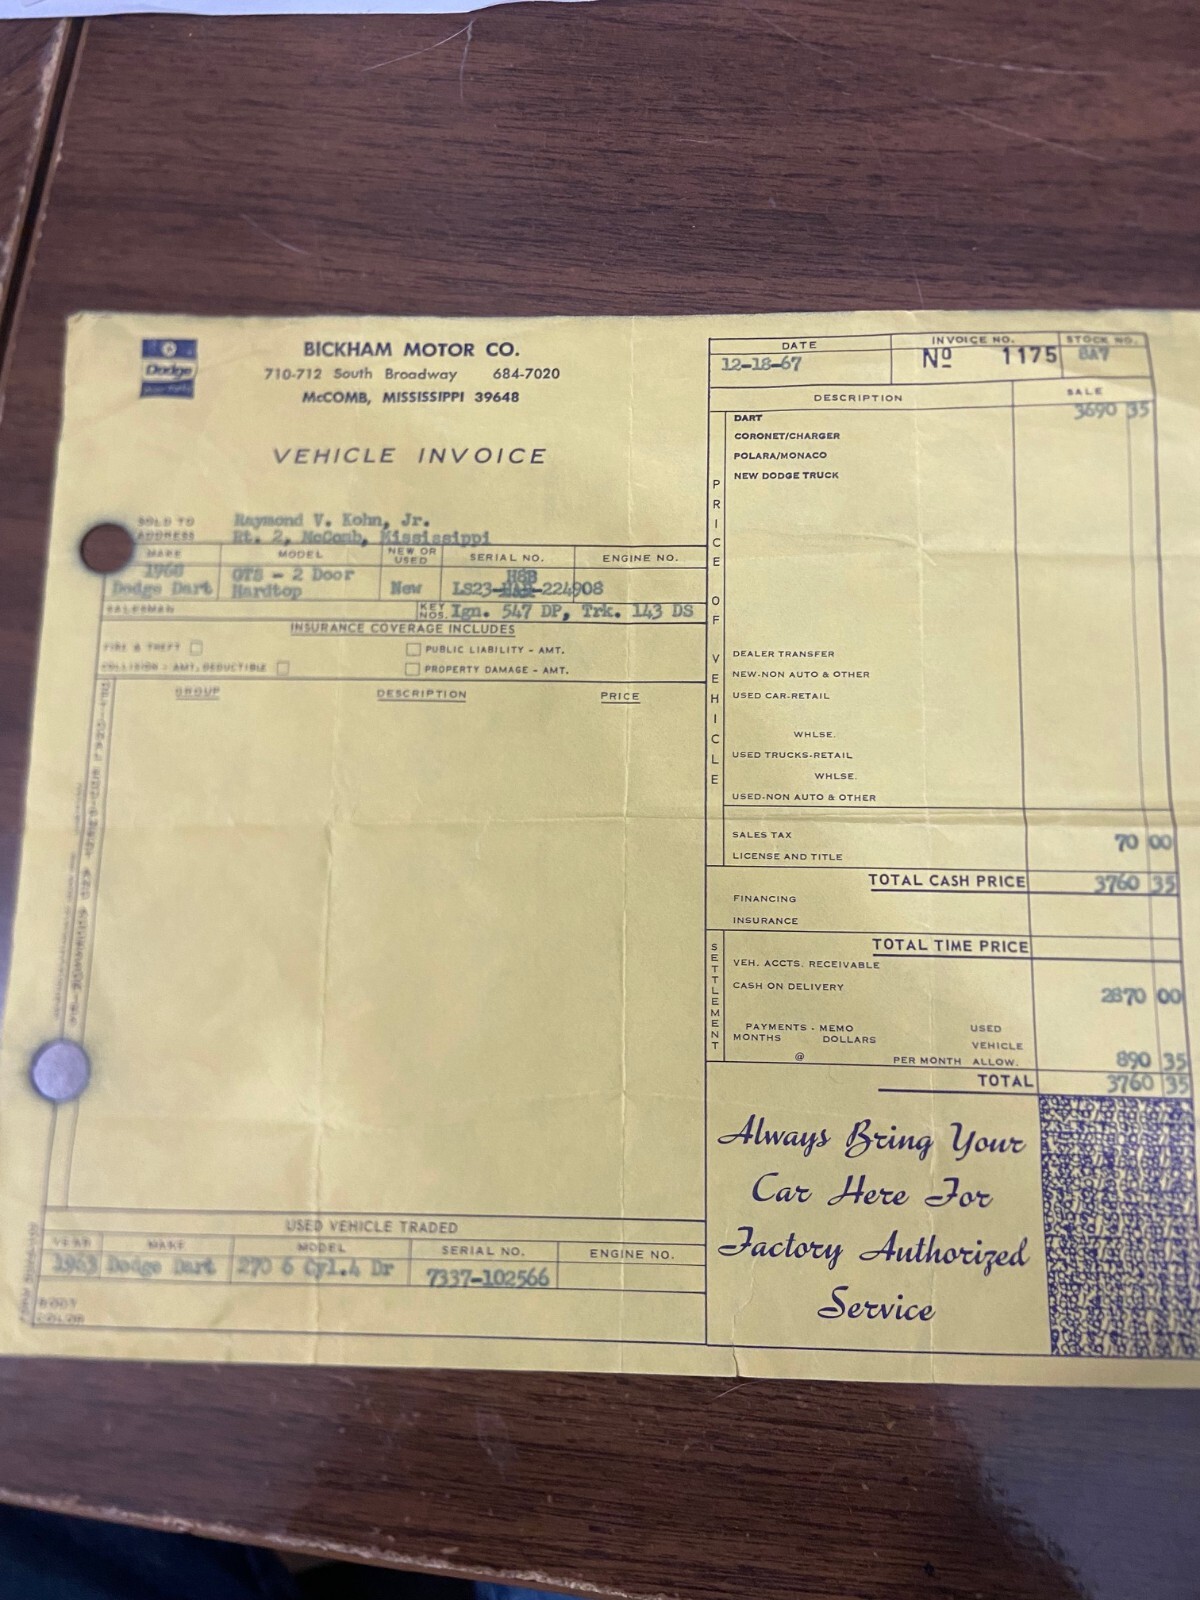 Dodge
BICKHAM MOTOR CO.
710-712 South Broadway 684-7020
McCOMB, MISSISSIPPI 39648
VEHICLE INVOICE
SOLD TO Raymond V. Kohn, Jr.
ADDRESS Rt. 2, McComb, Mississippi
MAKE MODEL NEW OR USED SERIAL NO. ENGINE NO.
1968 Dodge Dart GTS - 2 Door Hardtop New LS23-H8B-224908
SALESMAN KEY NOS. Ign. 547 DP, Trk. 143 DS
INSURANCE COVERAGE INCLUDES
FIRE & THEFT PUBLIC LIABILITY - AMT.
COLLISION - AMT. DEDUCTIBLE PROPERTY DAMAGE - AMT.
GROUP DESCRIPTION PRICE
USED VEHICLE TRADED
YEAR MAKE MODEL SERIAL NO. ENGINE NO.
1963 Dodge Dart 270 6 Cyl.4 Dr 7337-102566
DATE INVOICE NO. STOCK NO.
12-18-67 Nº 1175 8A7
DESCRIPTION SALE
PRICE OF VEHICLE
DART 3690 35
CORONET/CHARGER
POLARA/MONACO
NEW DODGE TRUCK
DEALER TRANSFER
NEW-NON AUTO & OTHER
USED CAR-RETAIL
WHLSE.
USED TRUCKS-RETAIL
WHLSE.
USED-NON AUTO & OTHER
SALES TAX 70 00
LICENSE AND TITLE
TOTAL CASH PRICE 3760 35
FINANCING
INSURANCE
TOTAL TIME PRICE
SETTLEMENT
VEH. ACCTS. RECEIVABLE
CASH ON DELIVERY 2870 00
PAYMENTS - MEMO USED
MONTHS DOLLARS VEHICLE
@ PER MONTH ALLOW. 890 35
TOTAL 3760 35
Always Bring Your
Car Here For
Factory Authorized
Service